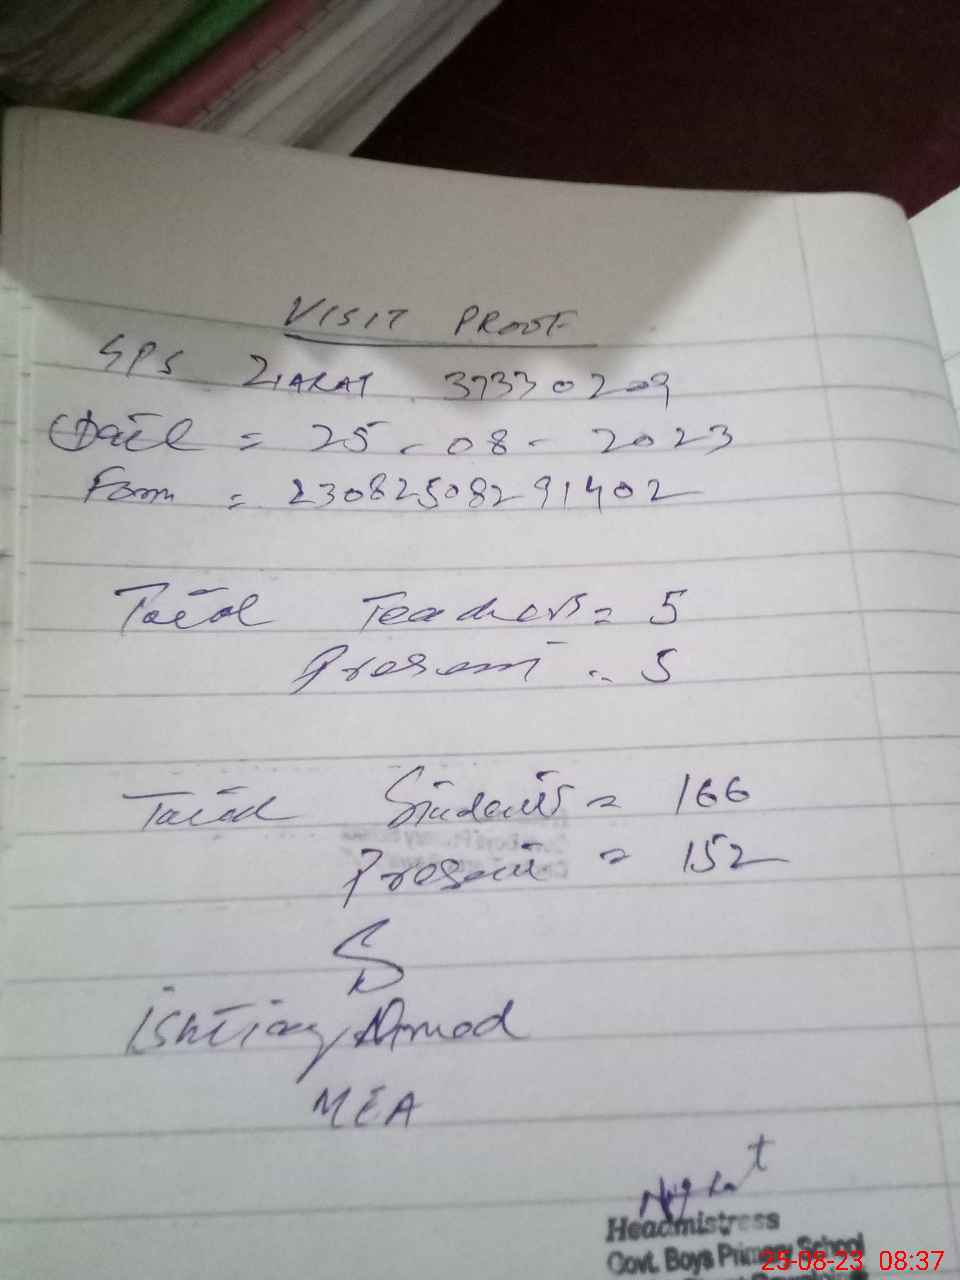 VISIT PROOF
GPS ZIARAT 37330209
Date = 25-08-2023
Form = 23082508291402
Total Teachers = 5
Present = 5
Total Students = 166
Present = 152
Ishtiaq Ahmad
MEA
Nighat
Headmistress
Govt. Boys Primary School
25-08-23 08:37